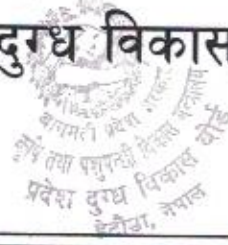 दुग्ध विकास
बागमती प्रदेश सरकार
कृषि तथा पशुपन्छी विकास मन्त्रालय
प्रदेश दुग्ध विकास बोर्ड
हेटौडा, नेपाल